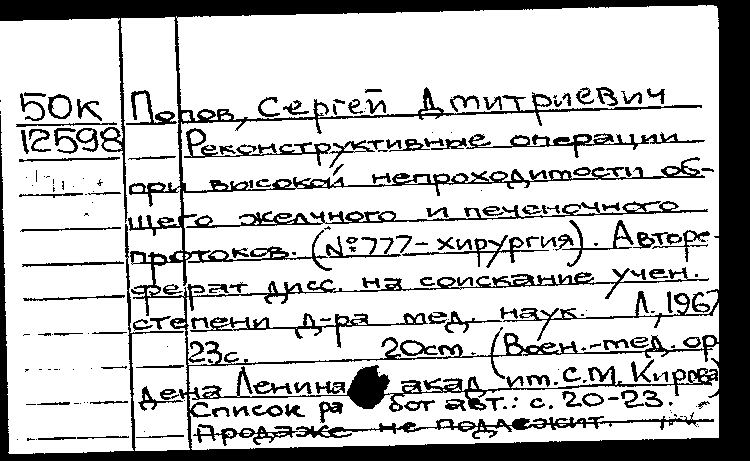 50к Попов, Сергей Дмитриевич
12598 Реконструктивные операции
при высокой непроходимости об-
щего желчного и печеночного
протоков. (№777-хирургия). Авторе-
ферат дисс. на соискание учен.
степени д-ра мед. наук. Л., 1967
23с. 20см. (Воен.-мед. ор
дена Ленина акад. им. С.М. Кирова)
Список работ авт.: с. 20-23.
Продаже не подлежит.